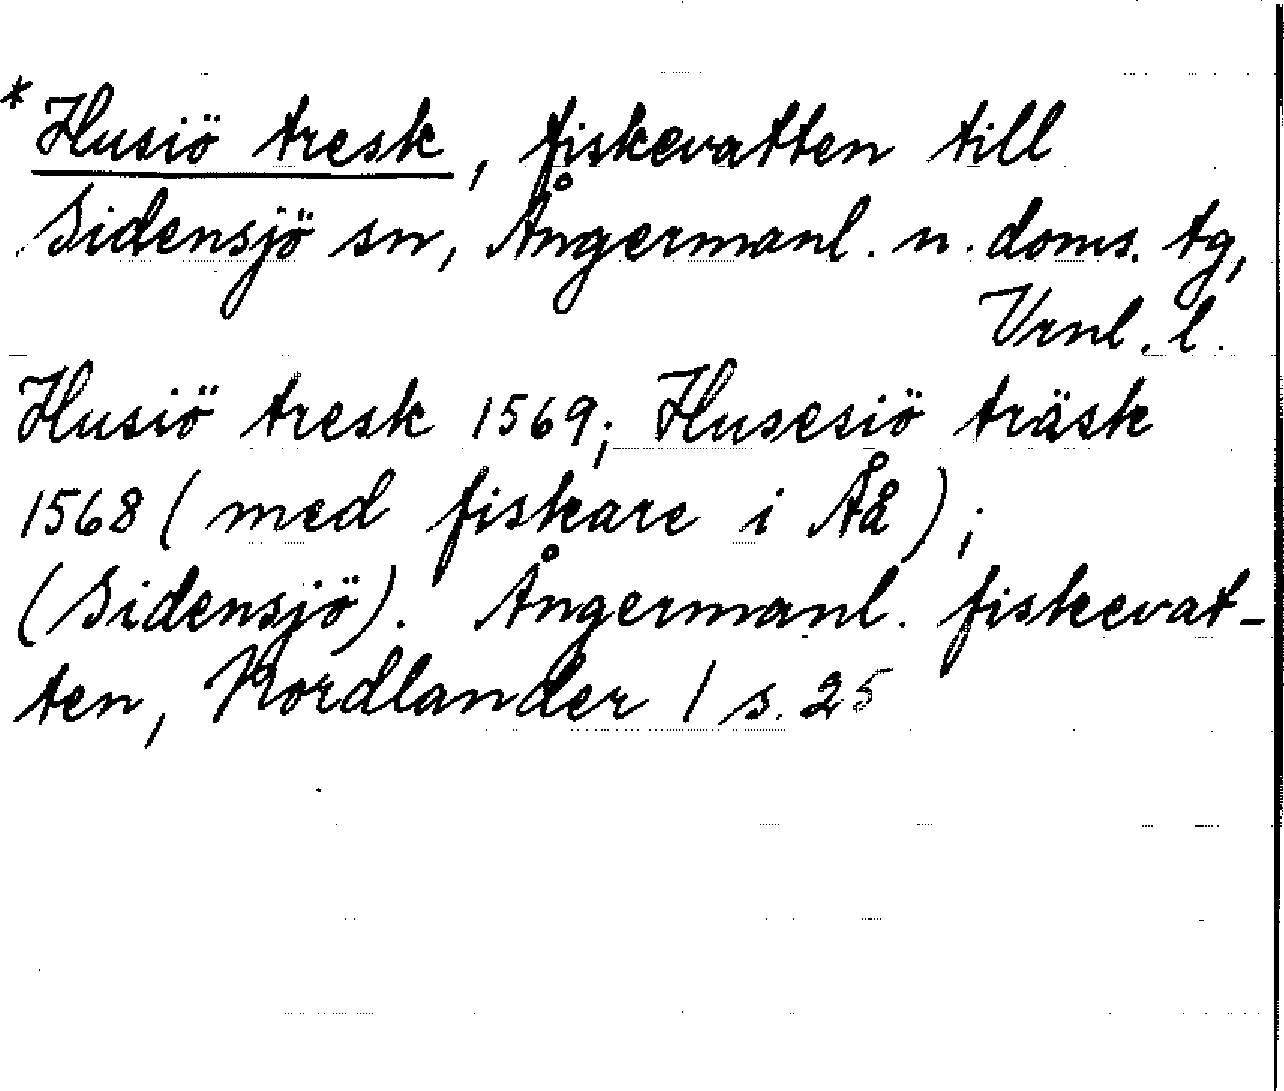 * Husiö tresk, fiskevatten till
Sidensjö sn, Ångermanl. n. doms. tg,
Vrnl. l.
Husiö tresk 1569; Husesiö träsk
1568 (med fiskare i Åå);
(Sidensjö). Ångermanl. fiskevat-
ten, Nordlander 1 s. 25